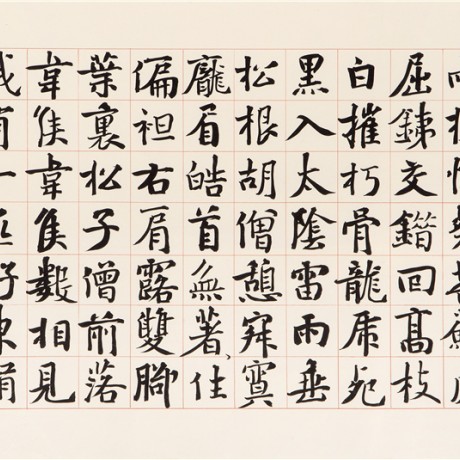 屈銕交錯回高枝
白摧朽骨龍虎死
黑入太陰雷雨垂
松根胡僧憩寂寞
龐眉皓首無著住
偏袒右肩露雙腳
葉裏松子僧前落
韋侯韋侯數相見